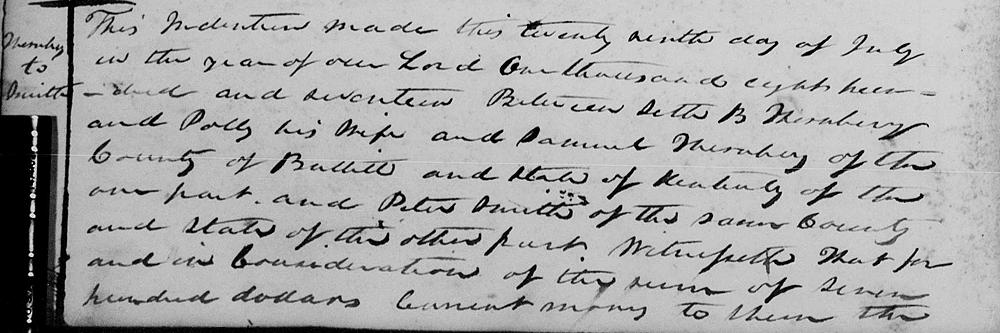 Thornbery
to
Smith
This Indenture made this twenty ninth day of July
in the year of our Lord One thousand eight hun=
=dred and seventeen Between Seth B Thornbery
and Polly his Wife and Samuel Thornbery of the
County of Bullitt and State of Kentucky of the
one part. and Peter Smith of the same County
and State of the other part. Witnesseth That for
and in Consideration of the sum of seven
hundred dollars Current money to them the